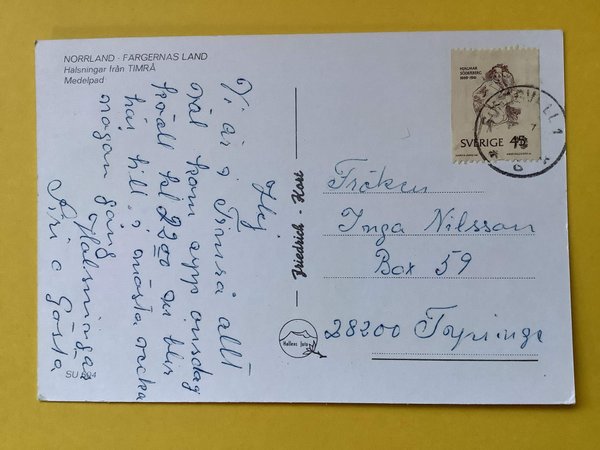 NORRLAND - FÄRGERNAS LAND
Hälsningar från TIMRÅ
Medelpad
Hej
Vi är i Timrå allt
väl kom upp onsdag
kväll kl 2200 vi blir
här till i nästa vecka
någon gång
Hälsningar
Siri o Gösta
SU
Friedrich - Kort
Hallens foto
HJALMAR
SÖDERBERG
SVERIGE 45
Fröken
Inga Nilsson
Box 59
28200 Tyringe